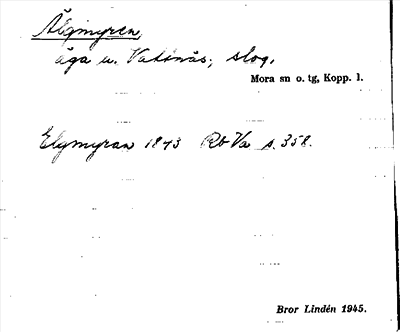 Älgmyren,
äga u. Vattnäs, slog.
Mora sn o. tg, Kopp. l.
Elgmyran 1843 Rb Va s. 358.
Bror Lindén 1945.